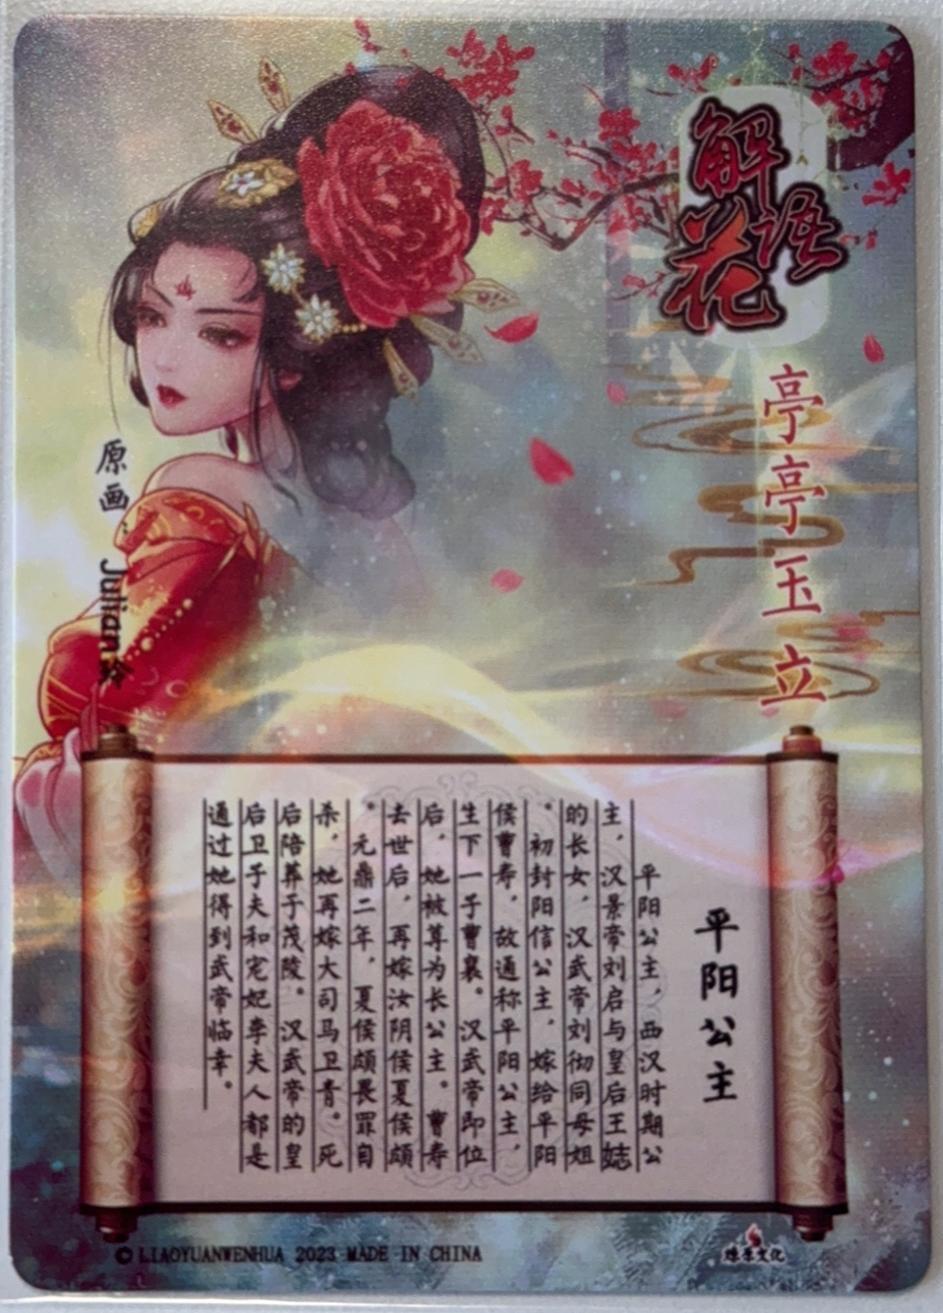 解语花
亭亭玉立
原画：Julian玲
平阳公主
平阳公主，西汉时期公
主，汉景帝刘启与皇后王娡
的长女，汉武帝刘彻同母姐
。初封阳信公主，嫁给平阳
侯曹寿，故通称平阳公主，
生下一子曹襄。汉武帝即位
后，她被尊为长公主。曹寿
去世后，再嫁汝阴侯夏侯颇
。元鼎二年，夏侯颇畏罪自
杀，她再嫁大司马卫青。死
后陪葬于茂陵。汉武帝的皇
后卫子夫和宠妃李夫人都是
通过她得到武帝临幸。
© LIAOYUANWENHUA 2023 MADE IN CHINA
燎原文化